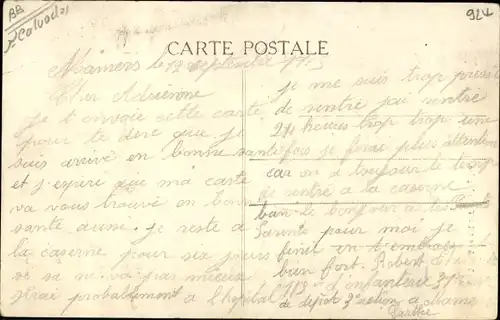 BB
Calvados
924
CARTE POSTALE
Mamers le 12 septembre 1915
Cher Adrienne
Je t envoie cette carte
pour te dire que je
suis arrivé en bonne santé
et j'esperi que ma carte
va vous trouvé en bonne
sante aussi. je reste a
la caserne pour six jours
si sa ne va pas mieux
j'irai probablement a l'hopital
je me suis trop préssé
de rentré jai rentré
24 heures trop trop une
fois je ferai plus attention
car on a toujour le temp
de rentré a la caserne
bien le bonjour a tes
Parents pour moi je
finit en t'embrassant
bien fort. Robert
113e d'infanterie
de depot 3e section a Mamers
Sarthe